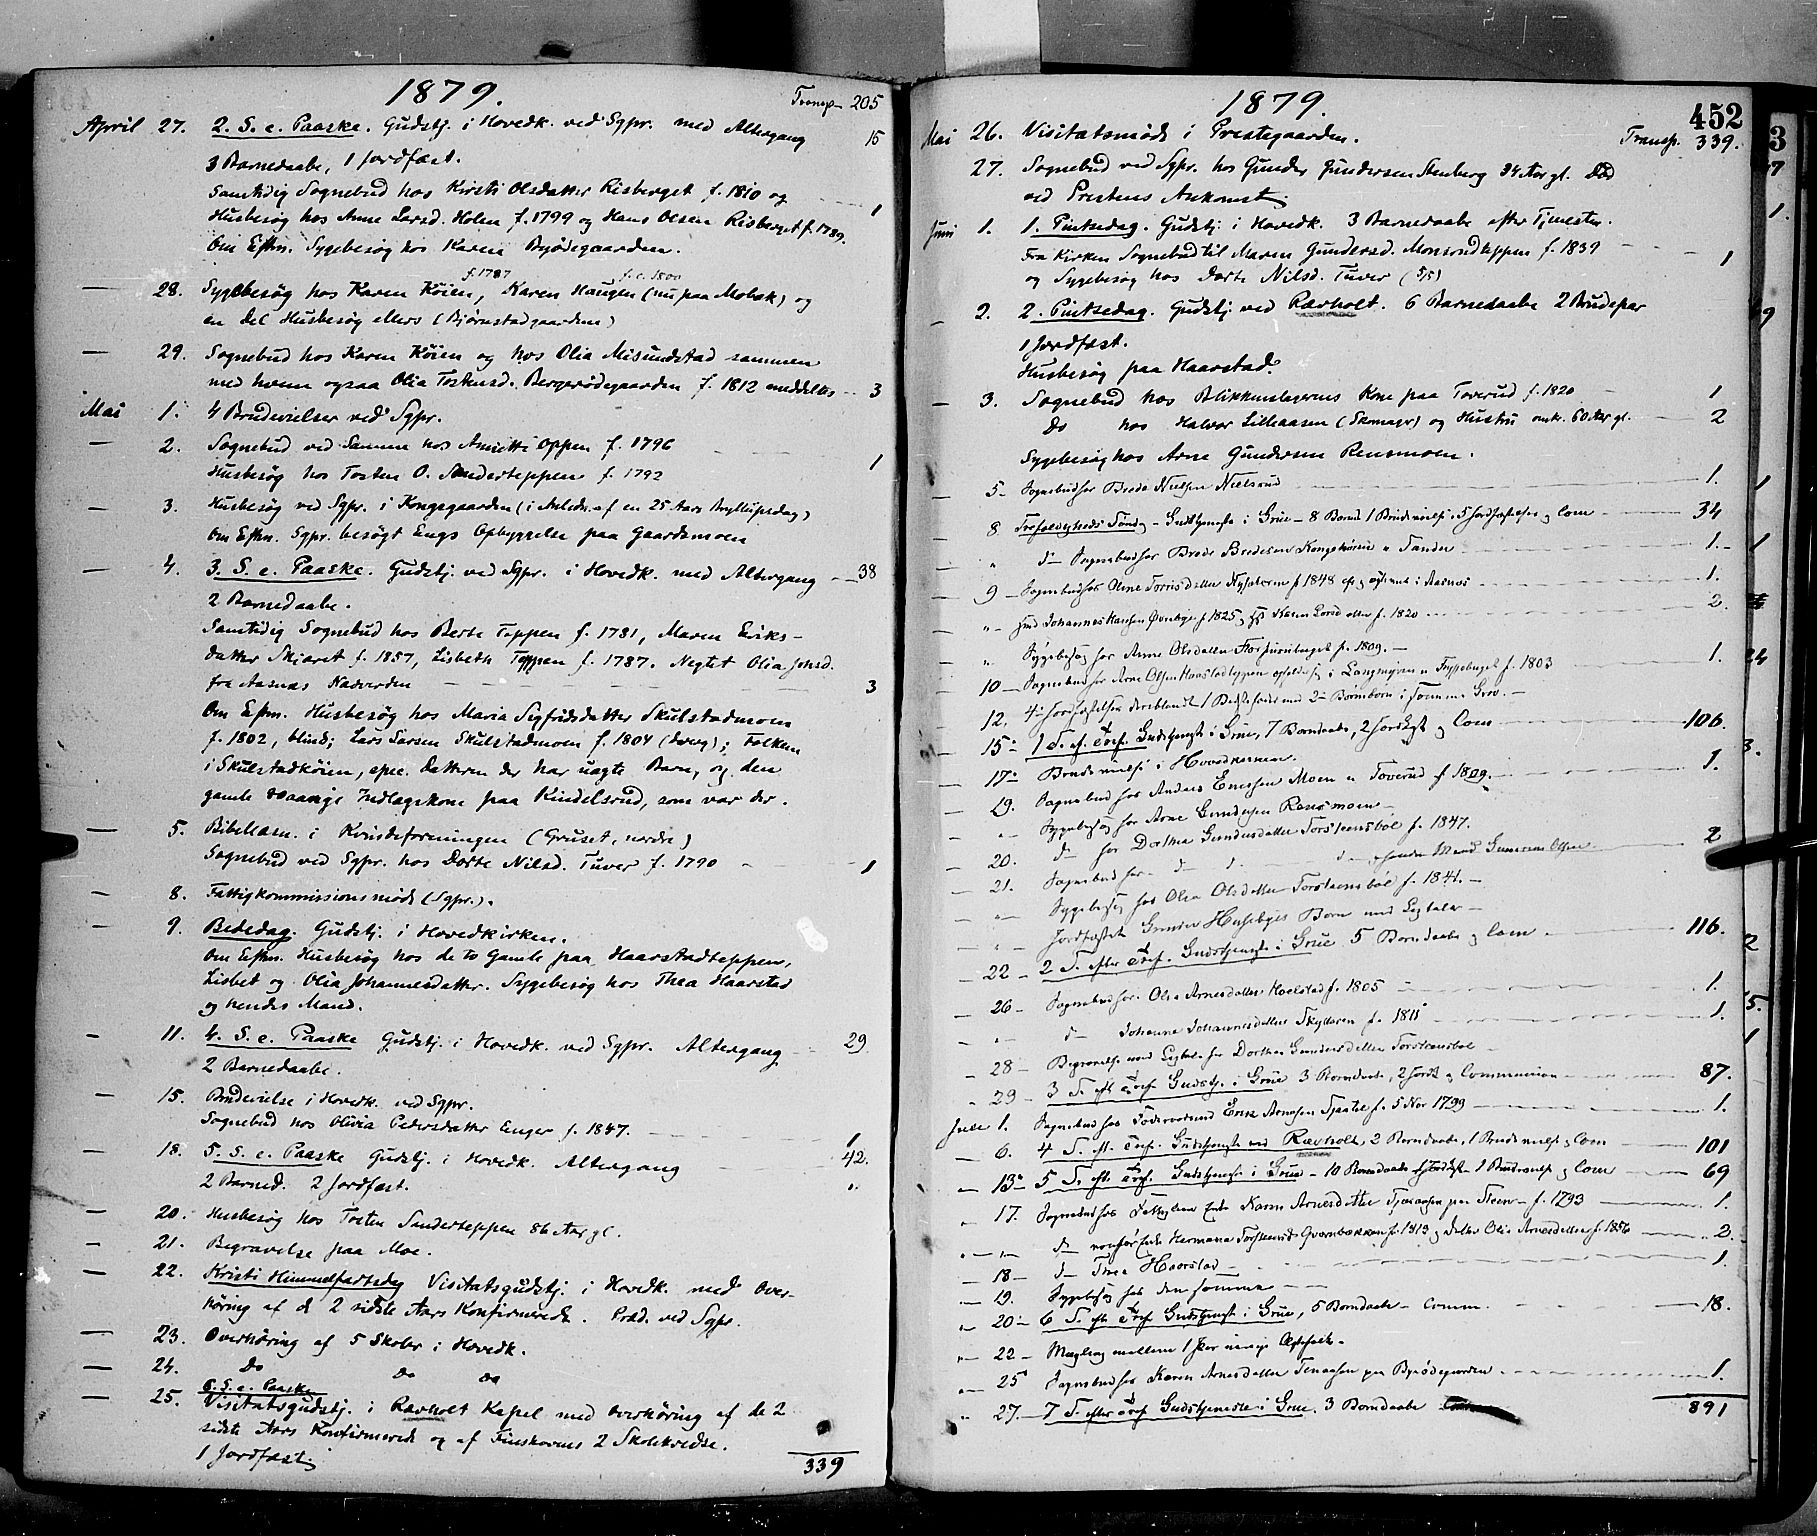 1879.
Transp. 205
April 27. 2. S. e. Paaske. Gudstj. i Hovedk. ved Sgpr. med Altergang 15
3 Barnedaabe, 1 Jordfæst.
Samtidig Sognebud hos Kirsti Olsdatter Risberget f. 1810 og 1
Husbesøg hos Anne Larsd. Holen f. 1799 og Hans Olsen Risberget f. 1789.
Om Eftm. Sygebesøg hos Karen Byødegaarden.
f. 1787 f. c. 1800
— 28. Sygebesøg hos Karen Køien, Karen Haugen (nu paa Mobak) og
en Del Husbesøg ellers (Bjørnstadgaarden)
— 29. Sognebud hos Karen Køien og hos Olia Misundstad sammen
med hvem ogsaa Olia Torkensd. Bergerødegaarden f. 1812 meddeltes 3
Mai 1. 4 Brudevielser ved Sgpr.
— 2. Sognebud ved Samme hos Annette Oppen f. 1796 1
Husbesøg hos Tosten O. Sanderteppen f. 1792
— 3. Husbesøg ved Sgpr. i Kongsgaarden (i Anledn. af en 25 Aars Bryllupsdag)
Om Eftm. Sgpr. besøgt Engs Opbyggelse paa Gaardsmoen
— 4. 3. S. e. Paaske. Gudstj. ved Sgpr. i Hovedk. med Altergang 38
2 Barnedaabe.
Samtidig Sognebud hos Berte Teppen f. 1781, Maren Eriks-
datter Skjæret f. 1857, Lisbeth Teppen f. 1787. Negtet Olia Johsd.
fra Aasnæs Nadverden 3
Om Eftm. Husbesøg hos Maria Sigfridsdatter Skulstadmoen
f. 1802, blind; Lars Larsen Skulstadmoen f. 1804 (døv); Folken
i Skulstadkøien, spec. Datteren der har uægte Barn, og den
gamle Indlagskone paa Kindelsrud, som var der.
— 5. Bibellæsn. i Kvindeforeningen (Gruset, nordre)
Sognebud ved Sgpr. hos Dorte Nilsd. Tuver f. 1790 1
— 8. Fattigkommissionsmøde (Sgpr.).
— 9. Bededag. Gudstj. i Hovedkirken.
Om Eftm. Husbesøg hos de to Gamle paa Haarstadteppen,
Lisbet og Olia Johannesdatter. Sygebesøg hos Thea Haarstad
og hendes Mand.
— 11. 4. S. e. Paaske Gudstj. i Hovedk. ved Sgpr. Altergang 29
2 Barnedaabe.
— 15. Brudevielse i Hovedk. ved Sgpr.
Sognebud hos Olivia Pedersdatter Enger f. 1847. 1
— 18. 5. S. e. Paaske Gudstj. i Hovedk. Altergang 42.
2 Barned. 2 Jordfæst.
— 20. Husbesøg hos Tosten Sanderteppen 86 Aar gl.
— 21. Begravelse paa Moe.
— 22. Kristi Himmelfartsdag Visitatsgudstj. i Hovedk. med Over-
høring af de 2 sidste Aars Konfirmerede. Præd. ved Sgpr.
— 23. Overhøring af 5 Skoler i Hovedk.
— 24. Do Do Do
6. S. e. Paaske
— 25. Visitatsgudstj. i Rævholt Kapel med Overhøring af de 2
sidste Aars Konfirmerede og af Finskovens 2 Skolekredse.
1 Jordfæst.
339
1879.
452
Transp. 339.
Mai 26. Visitatsmøde i Prestegaarden.
27. Sognebud ved Sgpr. hos Gunder Gundersen Stenberg 34 Aar gl. Død
ved Prestens Ankomst
Juni 1. 1. Pintsedag. Gudstj. i Hovedk. 3 Barnedaabe efter Tjenesten.
Fra Kirken Sognebud til Maren Gundersd. Monsrudteppen f. 1839 1
og Sygebesøg hos Dorte Nilsd. Tuver (5/5)
— 2. 2. Pintsedag. Gudstj. ved Rævholt. 6 Barnedaabe 2 Brudepar
1 Jordfæst.
Husbesøg paa Haarstad.
— 3. Sognebud hos Blikkenslagerens Kone paa Toverud f. 1820 1
Do hos Halvor Lilleaasen (Skomager) og Hustru omk. 60 Aar gl. 2
Sygebesøg hos Arne Gundersen Rensmoen.
— 5 — Sognebud hos Brede Nielsen Nielsrud 1.
8 Trefoldigheds Sønd. — Gudstjeneste i Grue — 8 Barned. 1 Brudevielse, 5 Jordfæstelser og Com 34
" do Sognebud hos Brede Bredesen 1.
9 — Sognebud hos f 1848 i Aasnes 1.
" — Johannes Hansen f 1825 og Karen Larsdatter f. 1820 2.
" Sygebesøg hos Arne Olsdatter f. 1809. —
10 — Sognebud hos Arne Olsen Haarstadteppen f. 1803 1.
12. 4 Jordfæstelser
15 1 S. ef. Tref. Gudstjeneste i Grue, 7 Barnedaabe, 2 Jordfæst og Com 106
17 Brudevielse i Hovedkirken.
19. Sognebud hos Anders Moen Toverud f 1809. 1.
" Sygebesøg hos Arne Gundersen Rensmoen
20. d— hos Dorthea Gundersdatter Torsteensbøl f. 1847.
21. Sognebud hos d d d hendes Mand Olsen 2
" — Sygebesøg hos Olea Olsdatter Torsteensbøl f. 1841. —
" — Jordfæstet Gunder Husebyes Barn med Ligtale —
22 — 2 S. efter Tref. Gudstjeneste i Grue 5 Barnedaabe og Com 116.
26 — Sognebud hos Olea Arnesdatter Hoelstad f. 1805 1.
" — d— Johanne Johannesdatter f. 1811 1.
28 — Begravelse med Ligtale hos Dorthea Gundersdatter Torsteensbøl —
29 — 3 S. eft Tref Gudstj. i Grue 3 Barnedaabe, 2 Jordf. og Communion 87.
Juli 1. Sognebud hos Føderaadsmand Erik Arnesen f. 5 Nov 1799 1.
— 6. 4 S. eft. Tref. Gudstjeneste ved Rævholt, 2 Barnedaabe, 1 Brudevielse og Com 101
— 13 5 S. eft. Tref. Gudstjeneste i Grue — 10 Barnedaabe Jordfæst 1 Brudevielse og Com 69
" 17. Sognebud hos Enke Karen Arnesdatter f. 1793 1.
" — " d— Enke Hermana f. 1813 og datter Olia Arnesdatter f. 1856 2.
— 18 — d— Thea Haarstad 1.
— 19. Sygebesøg hos den samme
" 20 — 6 S. eft Tref Gudstjeneste i Grue, 5 Barnedaabe — Comm. 18.
" — 22 — Mægling mellem 1 Par Ægtefolk.
— 25 Sognebud hos Karen Arnesdatter paa Byødegaarden 1.
" 27. — 7 S. efter Tref Gudstjeneste i Grue. 3 Barnedaabe
891